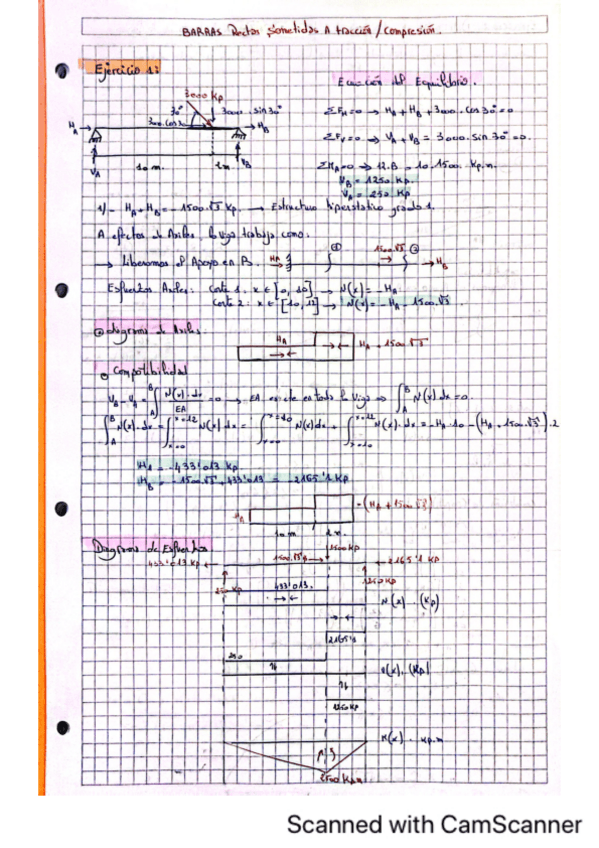 BARRAS Rectas Sometidas A tracción / Compresión.
Ejercicio 1:
Ecuación del Equilibrio.
3000 Kp
30° 3000. sin 30°
3000.cos 30
H_A H_B
10 m. 2 m.
V_A V_B
ΣF_H=0 → H_A + H_B + 3000. cos 30°=0
ΣF_V=0 → V_A + V_B = 3000. sin 30° =0.
ΣM_A=0 → 12.B = 10.1500. Kp.m.
V_B = 1250 Kp.
V_A = 250 Kp
1/- H_A + H_B = -1500.√3 Kp. → Estructura hiperstatica grado 1.
A efectos de Axiles, la viga trabaja como:
→ Liberamos el Apoyo en B. H_A ① 1500.√3 ② → H_B
Esfuerzos Axiles: Corte 1: x ∈ [0, 10] → N(x) = -H_A
Corte 2: x ∈ [10, 12] → N(x) = -H_A - 1500.√3
diagrama de Axiles.
H_A H_A + 1500 √3
Compatibilidad
U_B - U_A = ∫_A^B N(x).dx / EA = 0 → EA es cte en toda la viga ⇒ ∫_A^B N(x).dx = 0.
∫_A^B N(x).dx = ∫_{x=0}^{x=12} N(x) dx = ∫_{x=0}^{x=10} N(x) dx + ∫_{x=10}^{x=12} N(x).dx = -H_A.10 - (H_A + 1500.√3).2
H_A = -433'013 Kp
H_B = -1500.√3 + 433'013 = -2165'1 Kp
H_A -(H_A + 1500√3)
10 m 2 m.
Diagrama de Esfuerzos.
1500Kp
433'013 Kp 1500.√3 2165'1 Kp
250 Kp 1250 Kp
433'013.
N(x). (Kp)
2165'1
250
V(x). (Kp)
1250 Kp
M(x). Kp.m
2500 Kp.m
Scanned with CamScanner